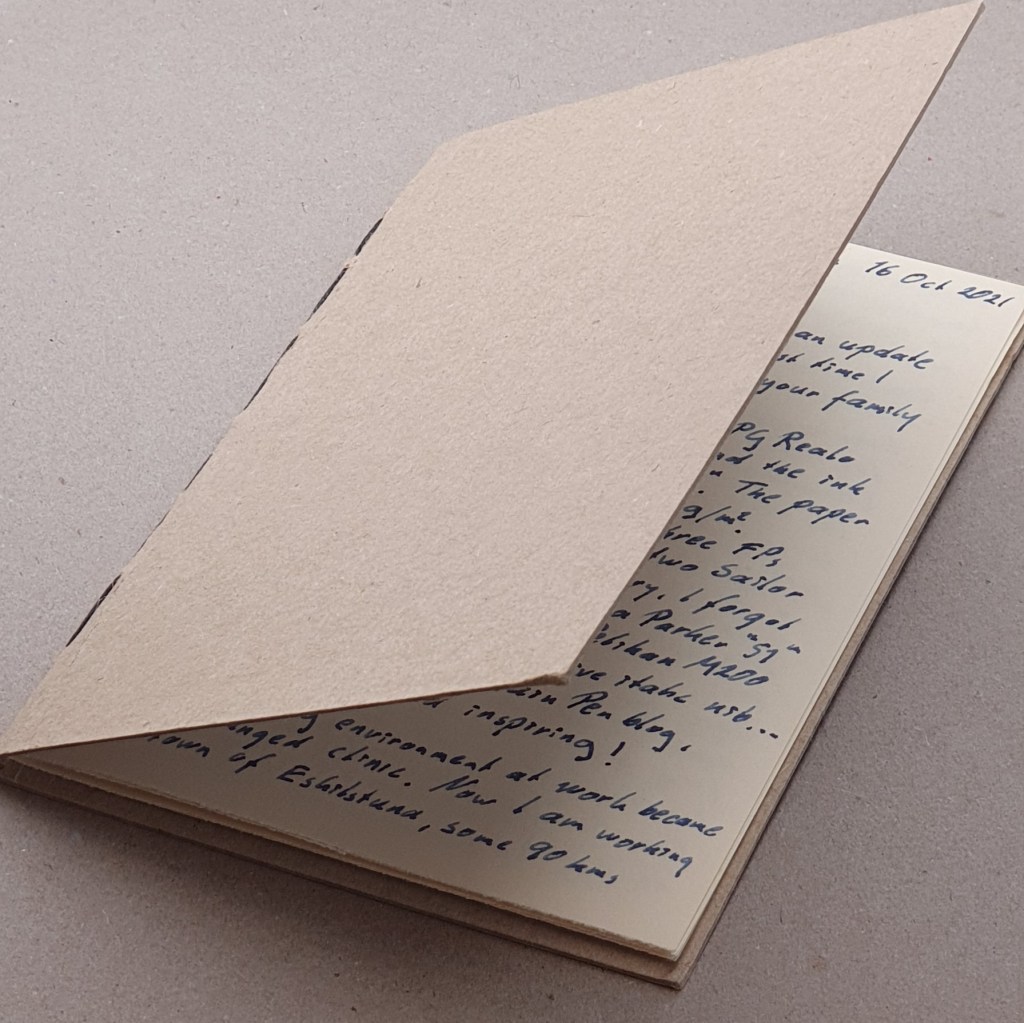 16 Oct 2021
an update
st time I
your family
PG Realo
nd the ink
The paper
g/m²
three FPs
two Sailor
ry. I forgot
a Parker "51"
elikan M200
ive italic nib...
ain Pen blog.
d inspiring!
g environment at work became
anged clinic. Now I am working
town of Eskilstuna, some 90 kms